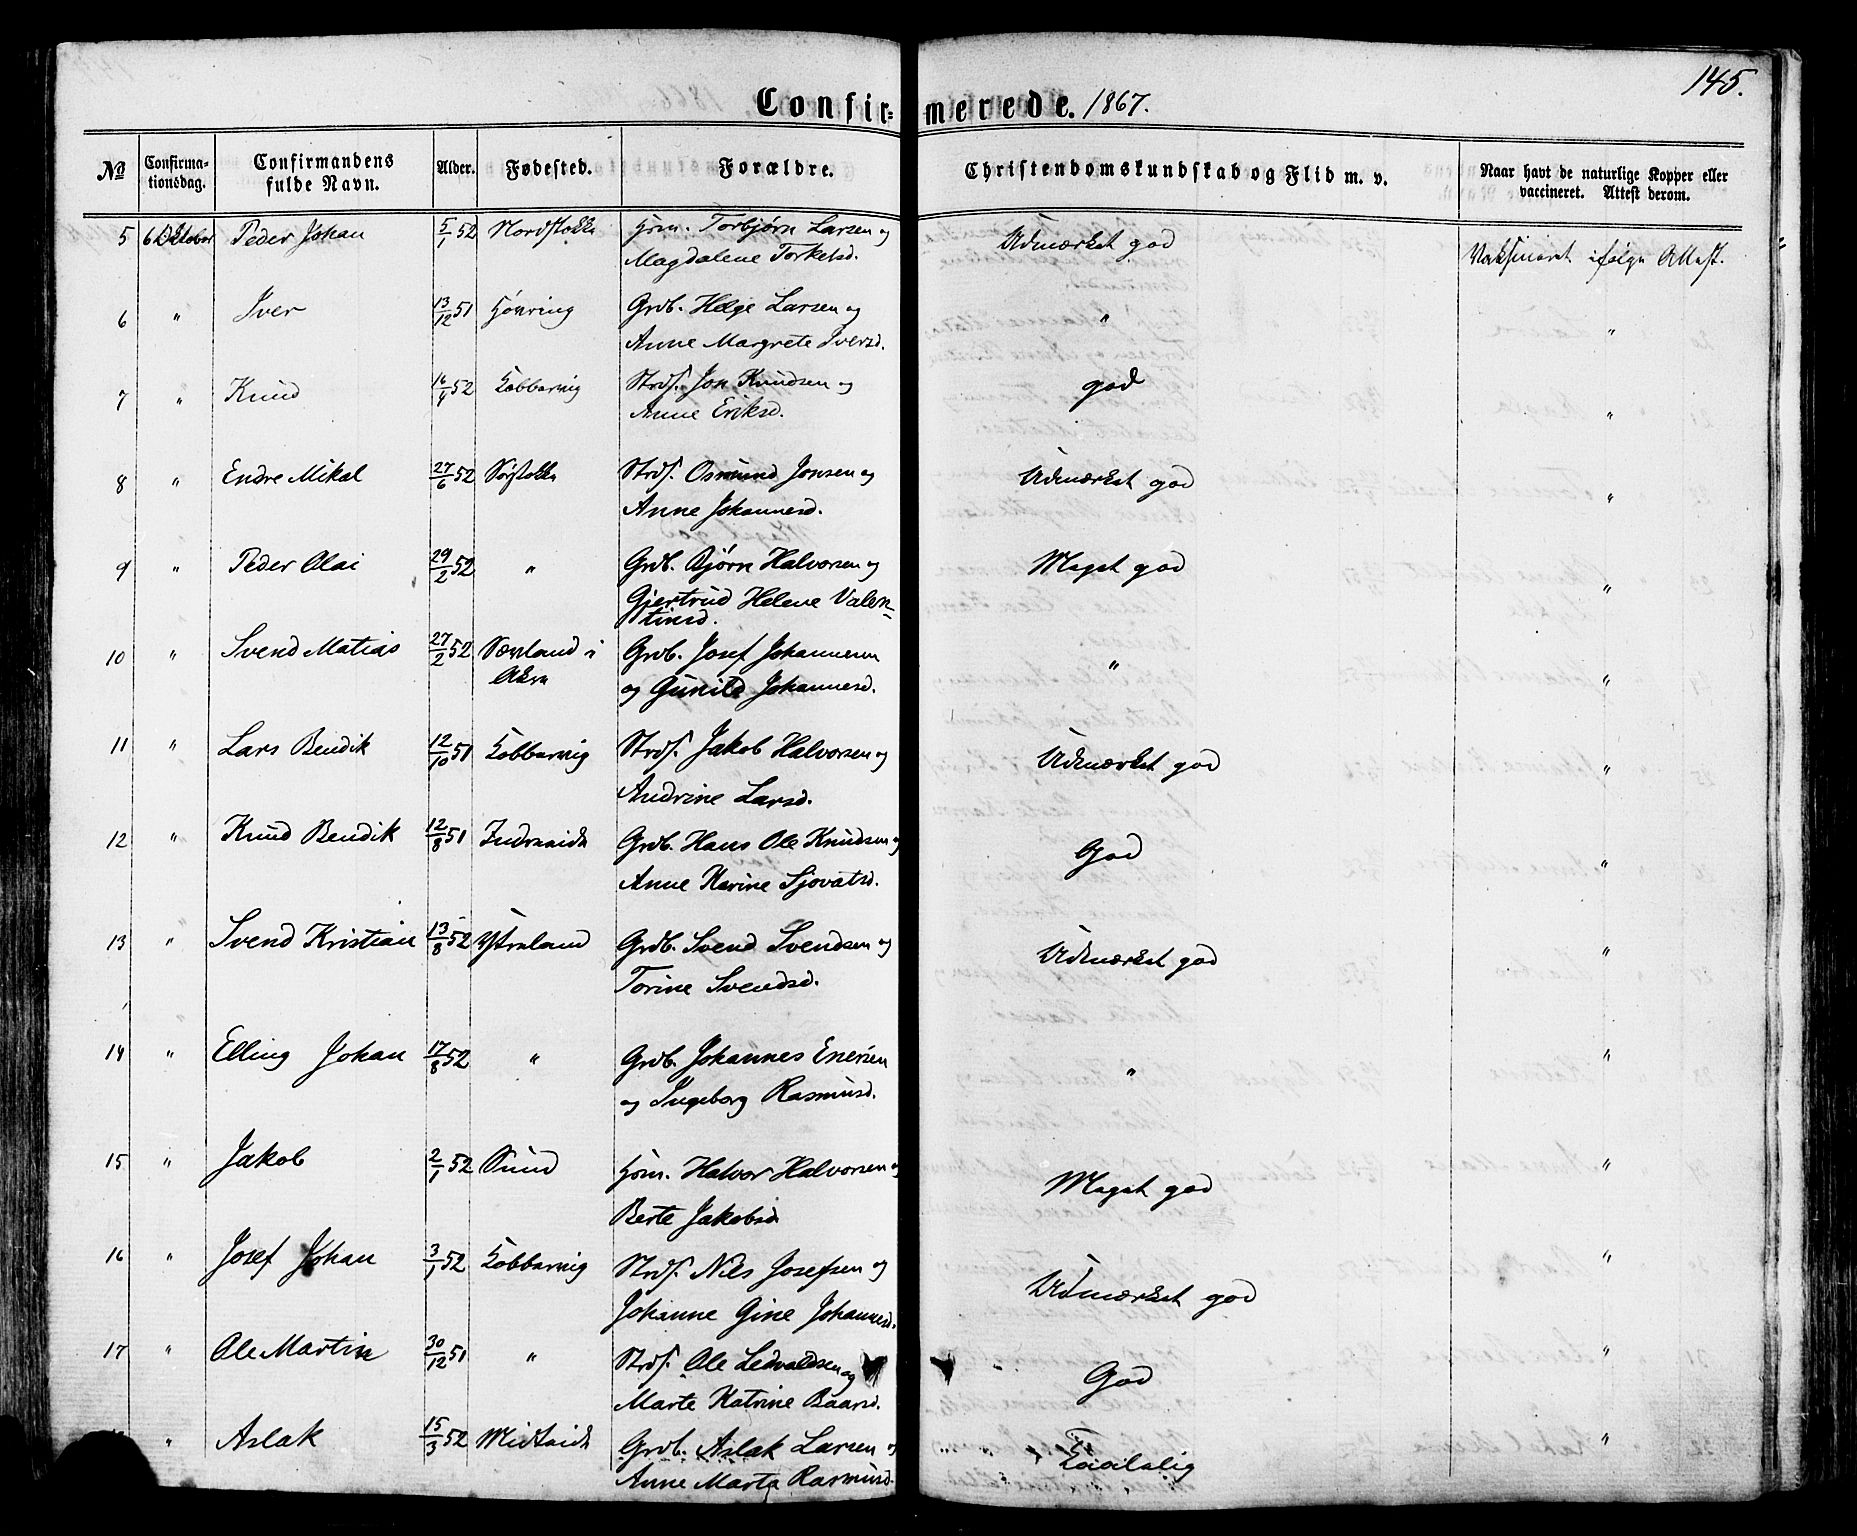 145.
Confir= merede. 1867.
No Confirma-tionsdag. Confirmandens fulde Navn. Alder. Fødested. Forældre. Christendomskundskab og Flid m. v. Naar havt de naturlige Kopper eller vaccineret. Attest derom.
5 6 Oktober Peder Johan 5/1 52 Nordstokke Hsm. Torbjørn Larsen og Udmærket god Vaksineret ifølge Attest.
Magdalene Torkelsd.
6 " Iver 13/12 51 Høvring Grdb. Helge Larsen og " "
Anne Margrete Iversd.
7 " Knud 16/4 52 Kobbervig Strds. Jon Knudsen og god "
Anne Eriksd.
8 " Endre Mikal 27/6 52 Sørstokke Strds. Osmund Jonsen og Udmærket god "
Anne Johannesd.
9 " Peder Olai 29/2 52 " Grdb. Bjørn Halvorsen og Meget god "
Gjertrud Helene Valen-
tinsd.
10 " Svend Matias 27/2 52 Sævland i Grdb. Josef Johannesen " "
Akre og Gunild Johannesd.
11 " Lars Bendik 12/10 51 Kobbervig Strds. Jakob Halvorsen og Udmærket god "
Andrine Larsd.
12 " Knud Bendik 12/8 51 Indreeide Grdb. Hans Ole Knudsen og God "
Anne Karine Sjovatsd.
13 " Svend Kristian 13/8 52 Ystraland Grdb. Svend Svendsen og Udmærket god "
Torine Svendsd.
14 " Elling Johan 17/8 52 " Grdb. Johannes Enersen " "
og Ingeborg Rasmusd.
15 " Jakob 2/1 52 Sund Hsm. Halvor Halvorsen og Meget god "
Berte Jakobsd.
16 " Josef Johan 3/1 52 Kobbervig Strds. Nils Josefsen og Udmærket god "
Johanne Gine Johannesd.
17 " Ole Martin 30/12 51 " Strds. Ole Ledvaldsen og God "
Marte Katrine Baarsd.
" Aslak 15/3 52 Midteide Grdb. Aslak Larsen og Taalelig "
Anne Marta Rasmusd.